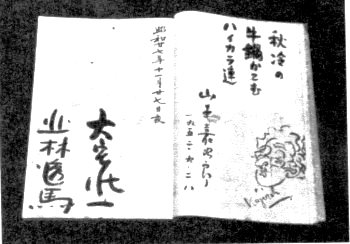 秋冷の
牛鍋かこむ
ハイカラ連
山本嘉次郎
一九五二・六・二八
昭和廿七年十一月廿七日夜
大宅壮一